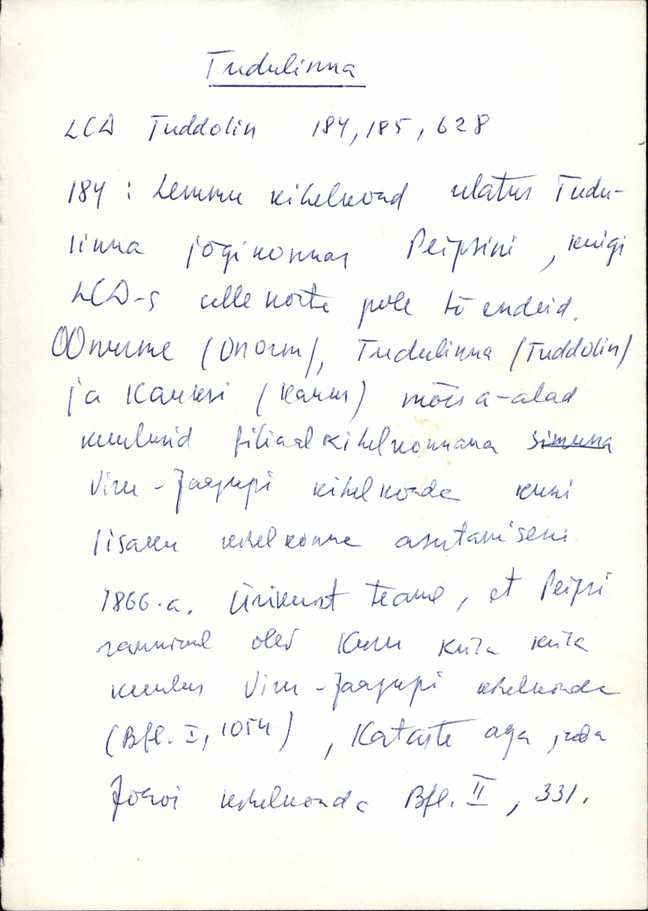 Tudulinna
LCD Tuddolin 184, 185, 628
184: Lemmu kihelkond ulatus Tudu-
linna jõgikonnas Peipsini, kuigi
LCD-s selle kohta pole tõendeid.
Oonurme (Onorm), Tudulinna (Tuddolin)
ja Kauksi (Kaukis) mõisa-alad
kuulusid filiaalkihelkonnana Simuna
Viru-Jaagupi kihelkonda kuni
Iisaku kihelkonna asutamiseni
1866.a. Ürikust teame, et Peipsi
rannikul olev Kuru küla küla
kuulus Viru-Jaagupi kihelkonda
(Bfl. I, 1054), Katase aga juba
Jõhvi kihelkonda Bfl. II, 331.